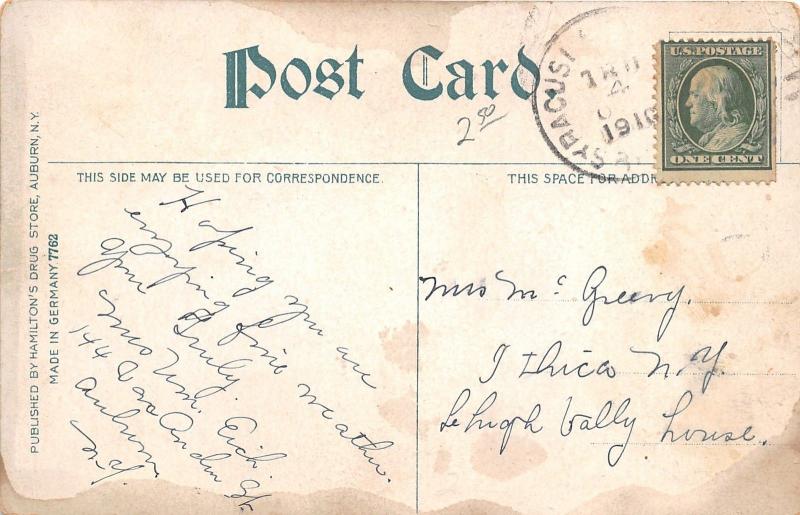 Post Card.
2 50
SYRACUSE
4
1910
U.S. POSTAGE
ONE CENT
THIS SIDE MAY BE USED FOR CORRESPONDENCE.
THIS SPACE FOR ADDR
PUBLISHED BY HAMILTON'S DRUG STORE, AUBURN, N.Y.
MADE IN GERMANY 7762
Hoping you are
enjoying fine weather.
Truly.
Mrs Wm. Eich.
144 Van Anden St.
Auburn
N.Y.
Mrs Mc Greevy.
Ithica N.Y.
Lehigh Vally House.